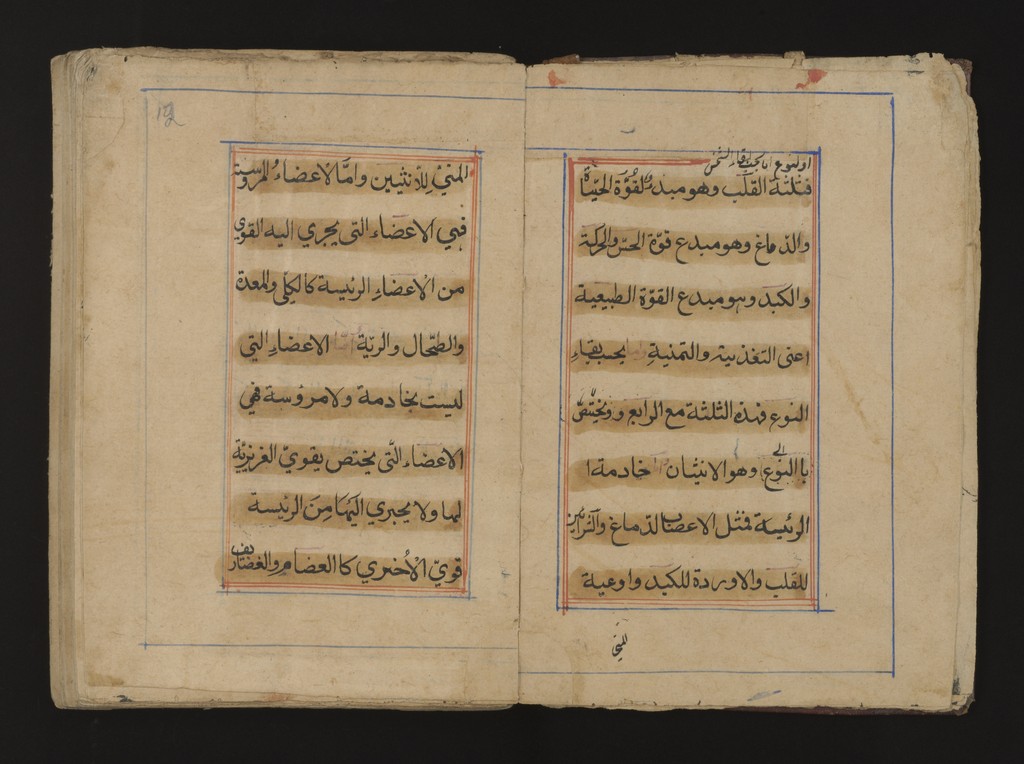 فثلثة القلب وهو مبدء القوّة الحيٰوة
والدّماغ وهو مبدع قوّة الحسّ والحركة
والكبد وهو مبدع القوّة الطبيعية
اعنى التغذية والتمنية بحسب بقاءِ
النوع فهذه الثلثة مع الرابع ويختصّ
باالنوع وهو الانثيان خادمة ا
الرئيسة فمثل الاعصاب الدّماغ والشرائين
للقلب والاوردة للكبد واوعية
للمنِي
12
المنيْ لِلانثيين وامّا الاعضاءُ المروسة
فهي الاعضاء التى يجري اليه القوي
من الاعضاءِ الرئيسة كالكِلٰى والمعدة
والطّحال والريّة الاعضاءِ التي
ليست بخادمة ولا مرؤسة فهي
الاعضاء الّتى يختص بقويّ الغريزيّة
لهما ولا يجري اليها مِنَ الرئيسة
قويّ الاُخري كا العضامِ والغضاريف